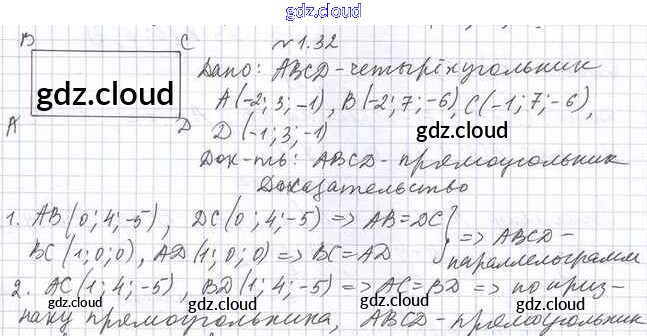 gdz.cloud
B C №1.32
Дано: ABCD-четырёхугольник
gdz.cloud A(-2; 3; -1), B(-2; 7; -6), C(-1; 7; -6),
A D D(-1; 3; -1) gdz.cloud
Док-ть: ABCD-прямоугольник
Доказательство
1. AB(0; 4; -5), DC(0; 4; -5) => AB=DC
BC(1; 0; 0), AD(1; 0; 0) => BC=AD } => ABCD-
gdz.cloud gdz.cloud параллелограмм
2. AC(1; 4; -5), BD(1; 4; -5) => AC=BD => по приз-
gdz.cloud gdz.cloud
наку прямоугольника, ABCD-прямоугольник